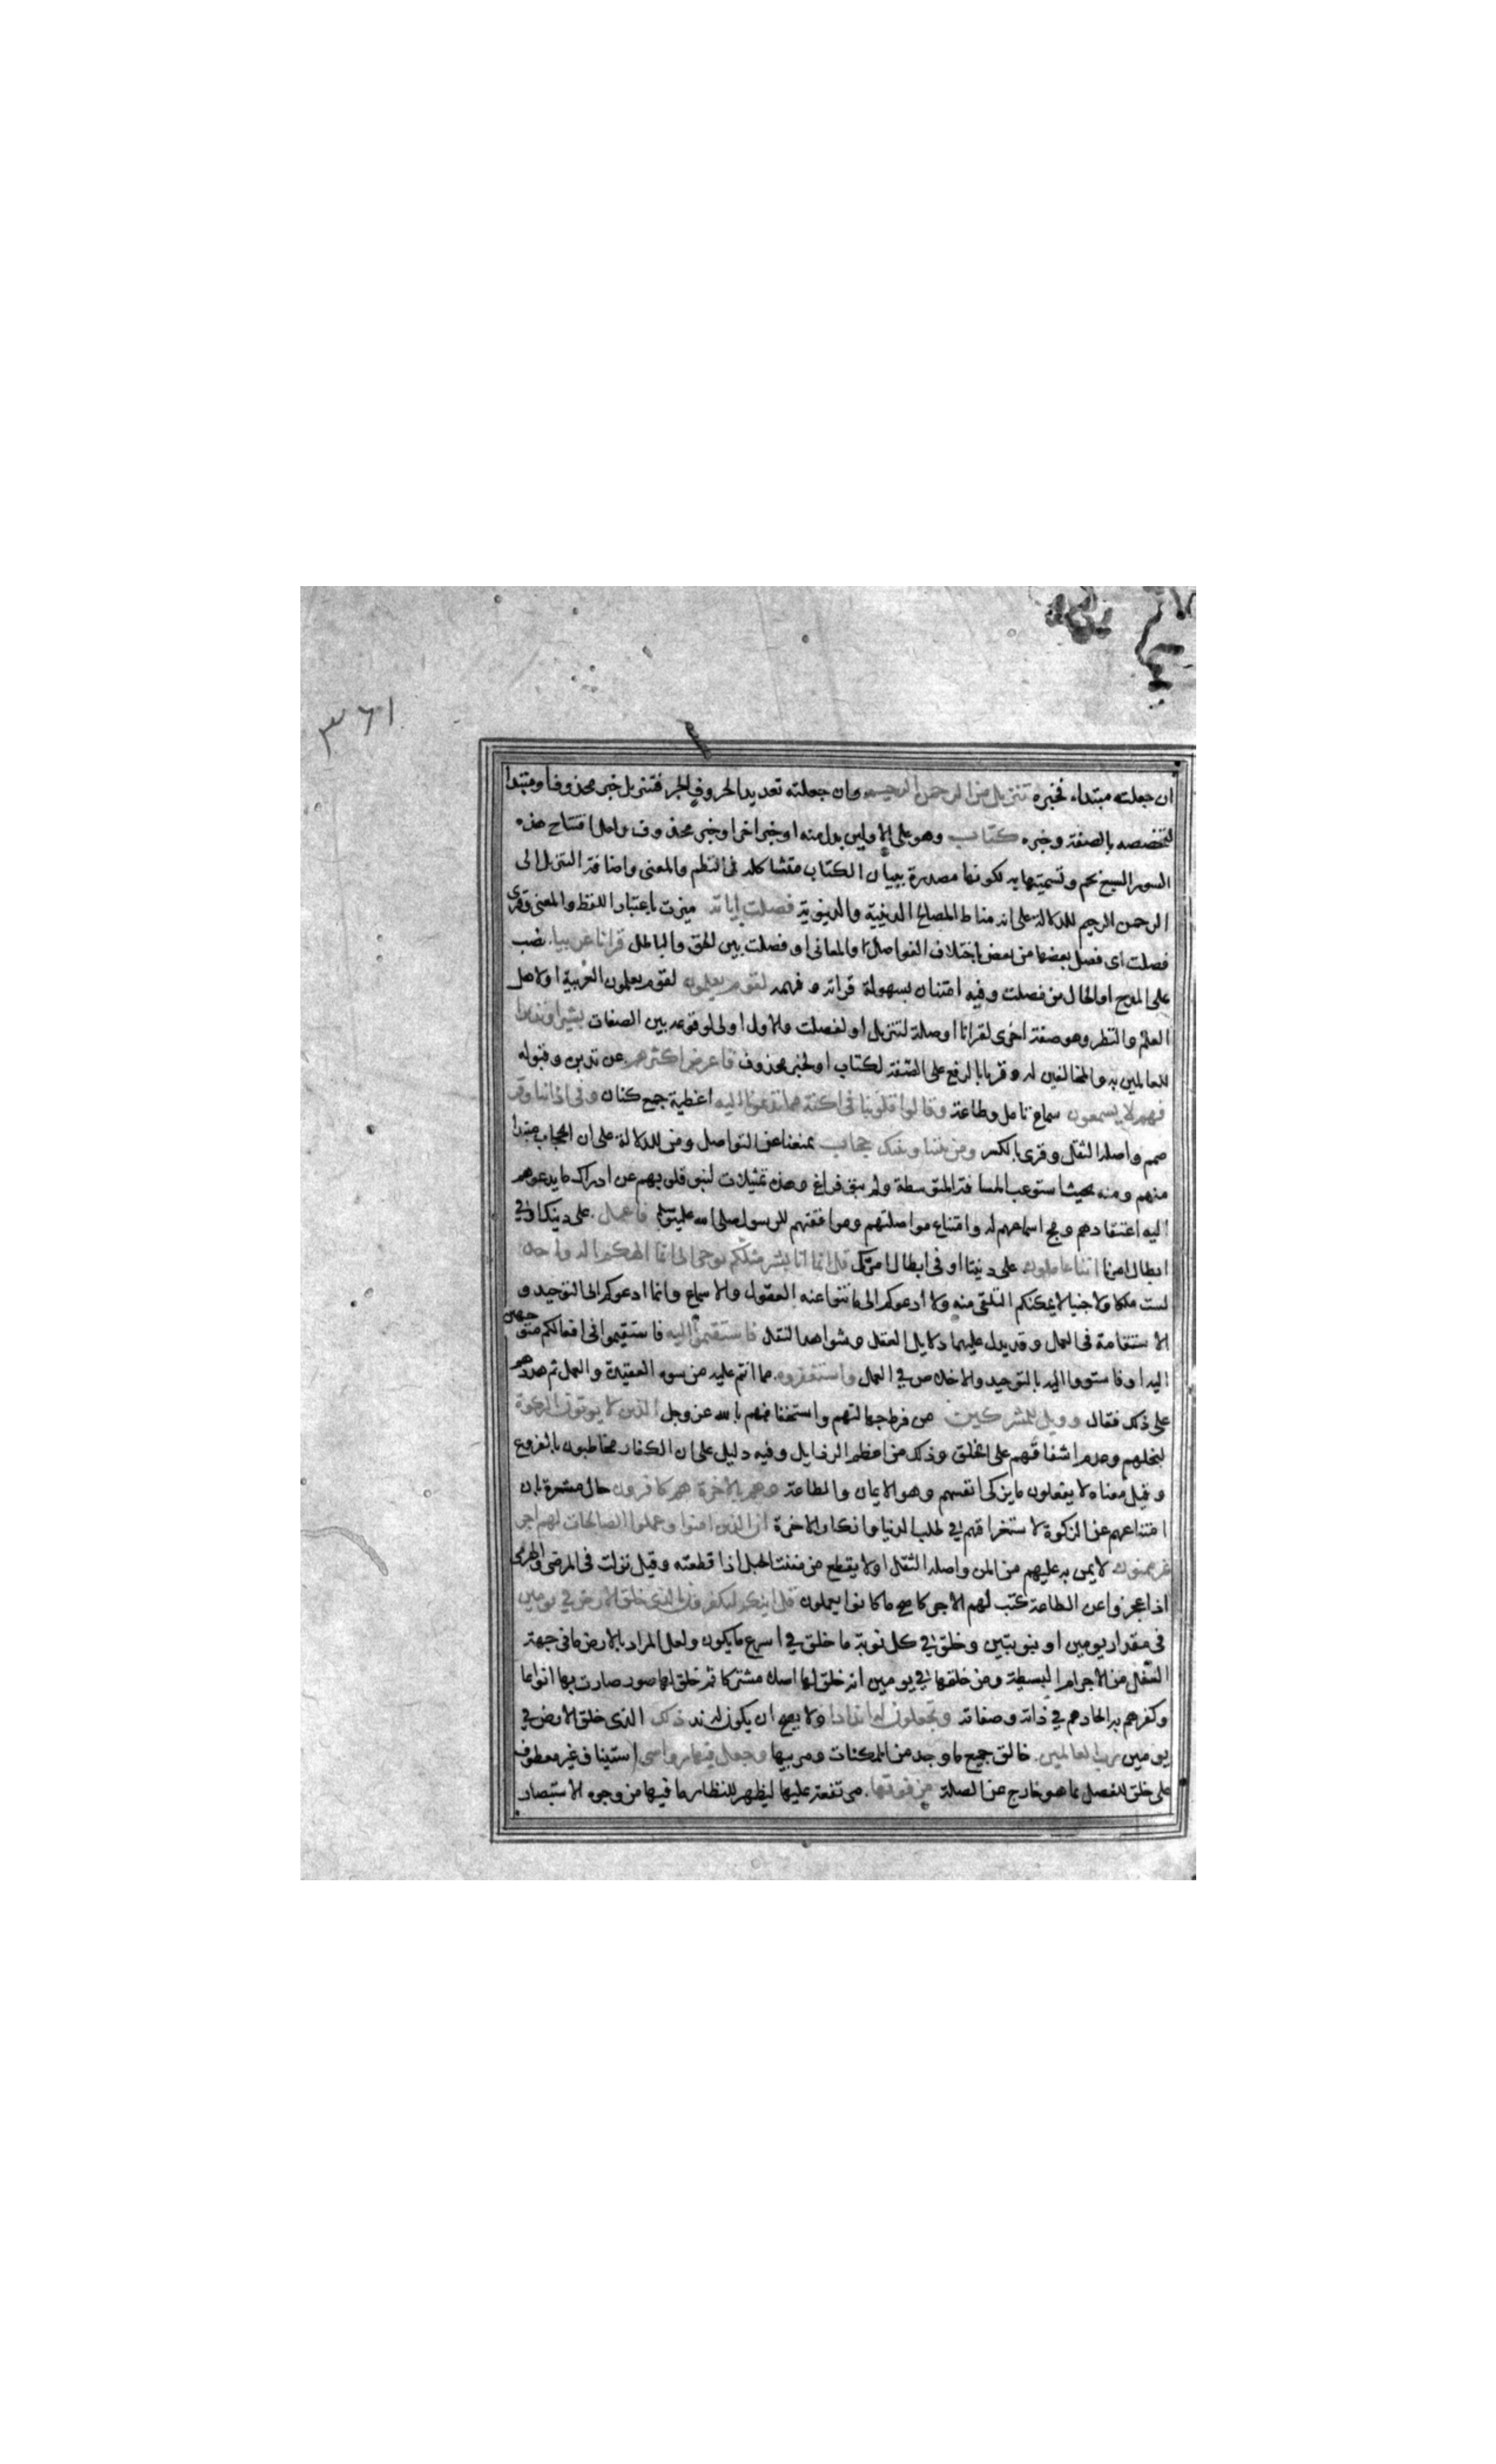 ٣٦١
ان جعلته مبتداء فخبره تنزيل من الرحمن الرحيم وان جعلته تعديد الحروف الجر فتنزيل خبر محذوف او مبتدا
لتخصصه بالصفة وخبره كتاب وهو على الاولين بدل منه او خبر اخر او خبر محذوف ولعل افتتاح هذه
السور السبع بحم وتسميتها به لكونها مصدرة ببيان الكتاب متشاكلة في النظم والمعنى واضافة التنزيل الى
الرحمن الرحيم للدلالة على انه مناط المصالح الدينية والدنيوية فصلت اياته ميزت باعتبار اللفظ والمعنى وقرئ
فصلت اى فصل بعضها من بعض باختلاف الفواصل والمعانى او فصلت بين الحق والباطل قرانا عربيا نصب
على المدح او الحال من فصلت وفيه امتنان بسهولة قراته وفهمه لقوم يعلمون لقوم يعلمون العربية او لاهل
العلم والنظر وهو صفة اخرى لقرانا او صلة لتنزيل او لفصلت والاول اولى لوقوعه بين الصفات بشيرا ونذيرا
للعالمين به والمخالفين له وقريا بالرفع على الصفة لكتاب او لخبر محذوف فاعرض اكثرهم عن تدبره وقبوله
فهم لا يسمعون سماع تامل وطاعة وقالوا قلوبنا فى اكنة مما تدعونا اليه اغطية جمع كنان وفى اذاننا وقر
صمم واصله الثقل وقرى بالكسر ومن بيننا وبينك حجاب يمنعنا عن التواصل ومن للدلالة على ان الحجاب مبتدا
منهم ومنه بحيث استوعب المسافة المتوسطة ولم يبق فراغ وهذه تمثيلات لنبو قلوبهم عن ادراك ما يدعوهم
اليه اعتقادهم ومج اسماعهم له وامتناع مواصلتهم وموافقتهم للرسول صلى الله عليه وسلم فاعمل على دينك او في
ابطال امرنا اننا عاملون على ديننا او فى ابطال امرك قل انما انا بشر مثلكم يوحى الى انما الهكم اله واحد
لست ملكا ولا جنيا لا يمكنكم التلقى منه ولا ادعوكم الى ما تنبوا عنه العقول والاسماع وانما ادعوكم الى التوحيد و
الاستقامة فى العمل وقد يدل عليهما دلايل العقل وشواهد النقل فاستقيموا اليه فاستقيموا فى افعالكم متوجهين
اليه او فاستووا اليه بالتوحيد والاخلاص في العمل واستغفروه مما انتم عليه من سوء العقيدة والعمل ثم هددهم
على ذلك فقال وويل للمشركين من فرط جهالتهم واستخفافهم بالله عز وجل الذين لا يوتون الزكوة
لبخلهم وعدم اشفاقهم على الخلق وذلك من اعظم الرذايل وفيه دليل على ان الكفار مخاطبون بالفروع
وقيل معناه لا يفعلون ما يزكى انفسهم وهو الايمان والطاعة وهم بالاخرة هم كافرون حال مشعرة بان
امتناعهم عن الزكوة لاستغراقهم في طلب الدنيا وانكار الاخرة ان الذين امنوا وعملوا الصالحات لهم اجر
غير ممنون لا يمن به عليهم من المن واصله الثقل او لا يقطع من مننت الحبل اذا قطعته وقيل نزلت فى المرضى والهرمى
اذا عجزوا عن الطاعة كتب لهم الاجر كاصح ما كانوا يعملون قل ائنكم لتكفرون بالذى خلق الارض في يومين
فى مقدار يومين او بنوبتين وخلق في كل نوبة ما خلق في اسرع ما يكون ولعل المراد بالارض ما فى جهة
السفل من الاجرام البسيطة ومن خلقها في يومين انه خلق لها اصلا مشتركا ثم خلق لها صور صارت بها انواعا
وكفرهم به الحادهم في ذاته وصفاته وتجعلون له اندادا ولا يصح ان يكون له ند ذلك الذى خلق الارض في
يومين رب العالمين خالق جميع ما وجد من الممكنات ومربيها وجعل فيها رواسى استيناف غير معطوف
على خلق للفصل بما هو خارج عن الصلة من فوقها مرتفعة عليها ليظهر للنظار ما فيها من وجوه الاستبصار